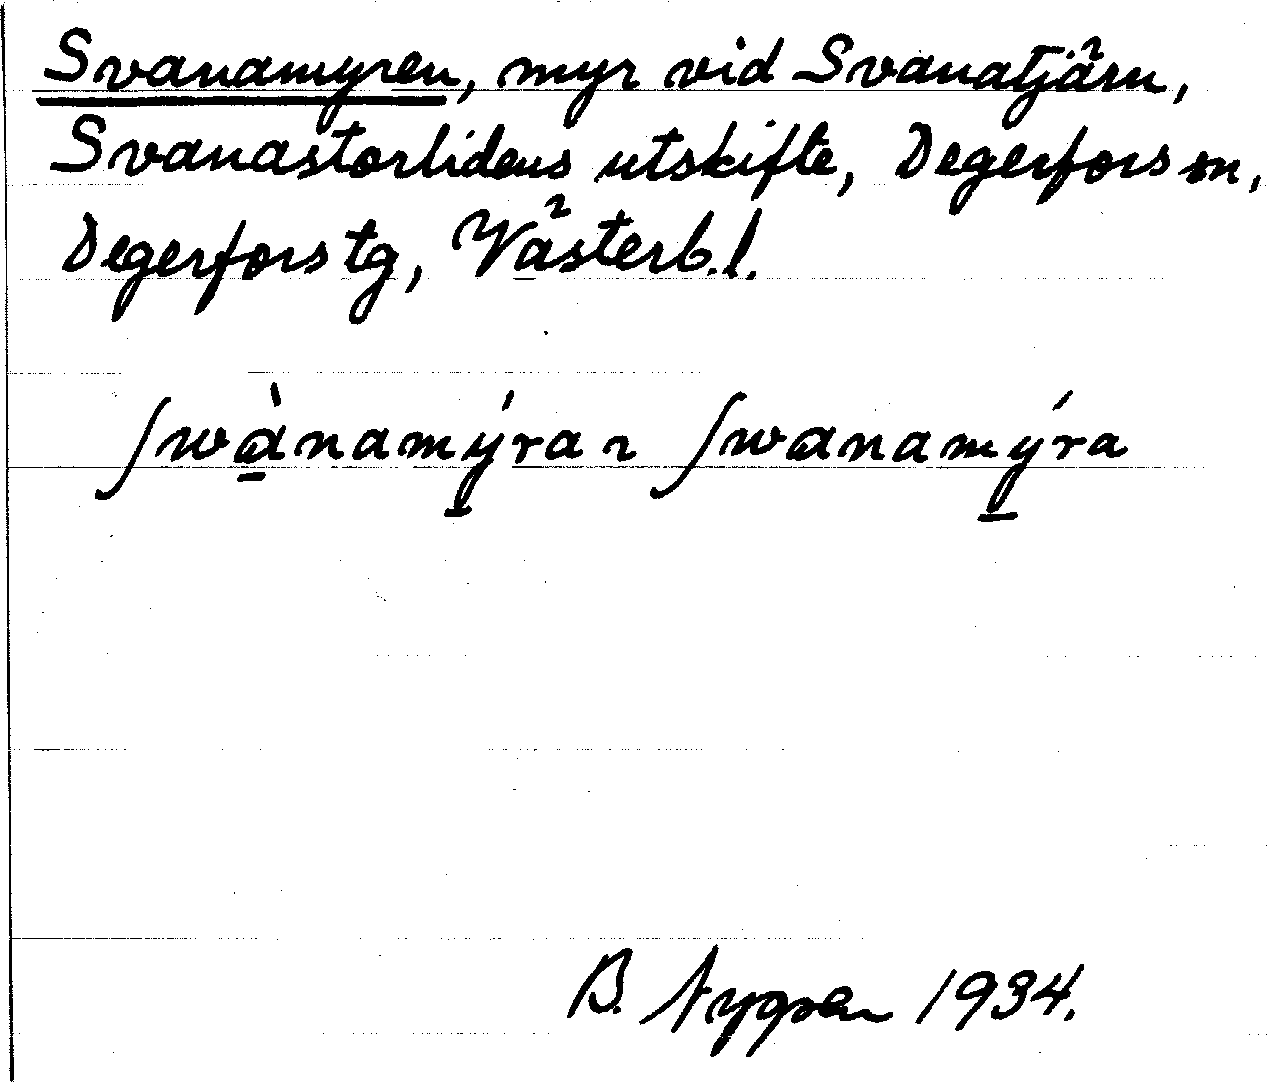 Svanamyren, myr vid Svanatjärn,
Svanastorlidens utskifte, Degerfors sn,
Degerfors tg, Västerb. l.
ʃwànamýra ~ ʃwanamýra
B. Nygren 1934.